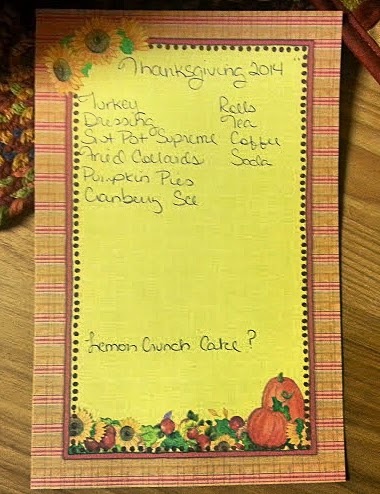 Thanksgiving 2014
Turkey
Dressing
Swt Pot Supreme
Fried Collards
Pumpkin Pies
Cranberry Sce
Rolls
Tea
Coffee
Soda
Lemon Crunch Cake?